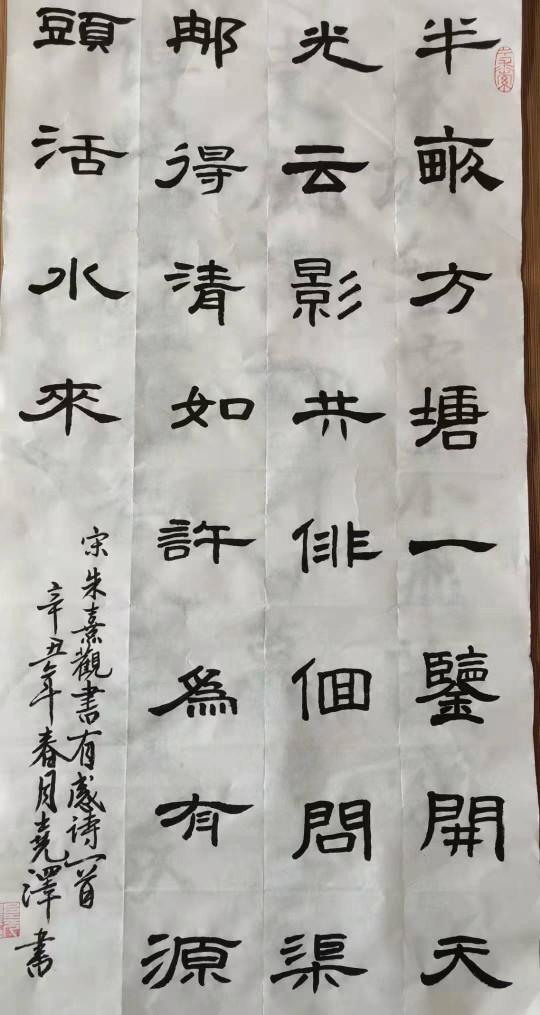 半畝方塘一鑒開天
光云影共徘徊問渠
那得清如許為有源
頭活水來
宋朱熹觀書有感詩一首
辛丑年春月堯澤書